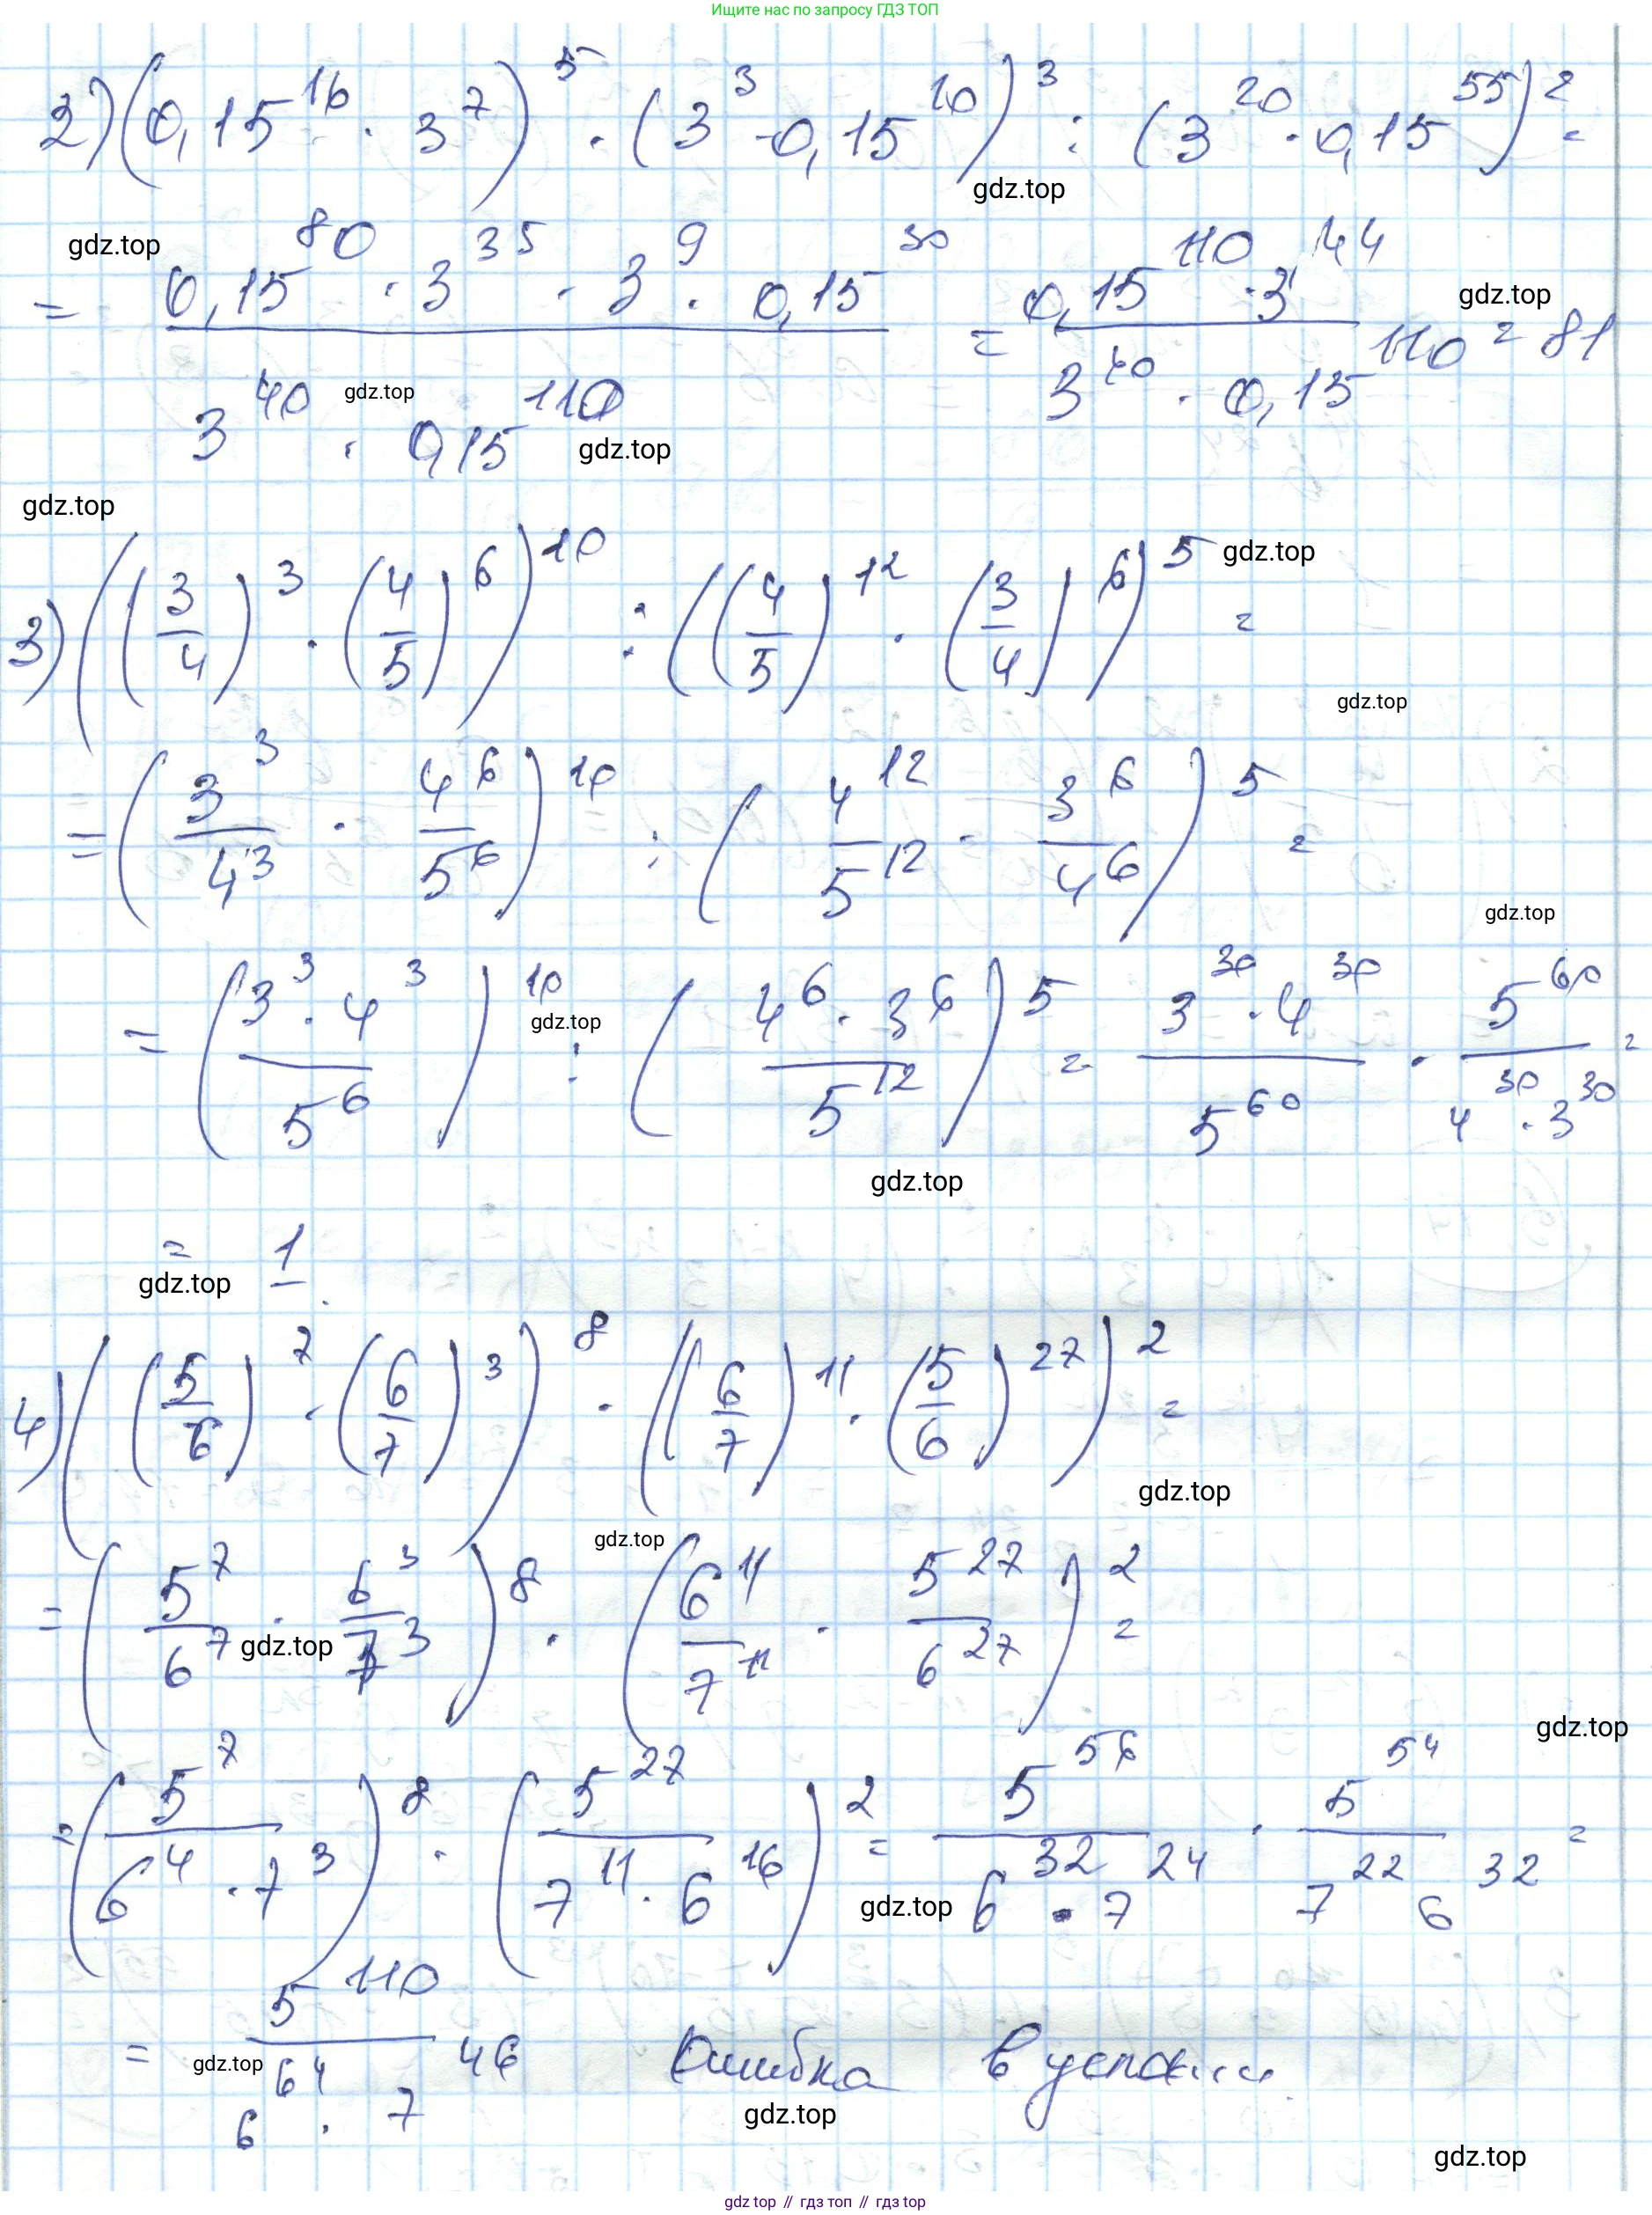 Ищите нас по запросу ГДЗ ТОП
2) (0,15^16 · 3^7)^5 · (3^3 · 0,15^10)^3 : (3^20 · 0,15^55)^2 =
gdz.top
gdz.top
= (0,15^80 · 3^35 · 3^9 · 0,15^30) / (3^40 · 0,15^110) = (0,15^110 · 3^44) / (3^40 · 0,15^110) = 81
gdz.top
gdz.top
gdz.top
gdz.top
3) ((3/4)^3 · (4/5)^6)^10 : ((4/5)^12 · (3/4)^6)^5 =
gdz.top
gdz.top
= (3^3/4^3 · 4^6/5^6)^10 : (4^12/5^12 · 3^6/4^6)^5 =
gdz.top
= (3^3 · 4^3 / 5^6)^10 : (4^6 · 3^6 / 5^12)^5 = (3^30 · 4^30) / 5^60 · 5^60 / (4^30 · 3^30) =
gdz.top
gdz.top
= 1.
gdz.top
4) ((5/6)^7 · (6/7)^3)^8 · ((6/7)^11 · (5/6)^27)^2 =
gdz.top
gdz.top
= (5^7/6^7 · 6^3/7^3)^8 · (6^11/7^11 · 5^27/6^27)^2 =
gdz.top
gdz.top
= (5^7 / (6^4 · 7^3))^8 · (5^27 / (7^11 · 6^16))^2 = 5^56 / (6^32 · 7^24) · 5^54 / (7^22 6^32) =
gdz.top
= 5^110 / (6^64 · 7^46) Ошибка в условии.
gdz.top
gdz.top
gdz.top
gdz top // гдз топ // гдз top